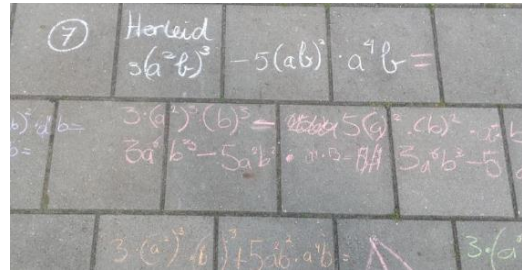 7 Herleid
3(a²b)³ - 5(ab)² · a⁴b =
b)² · a b = 3·(a²)³·(b)³ = 5(a)²·(b)²·
b = 3a⁶b³ - 5a²b² · = 3a⁶b³ - 5
3·(a²)³·(b)³ + 5a²b² · a⁴b = 3·(a